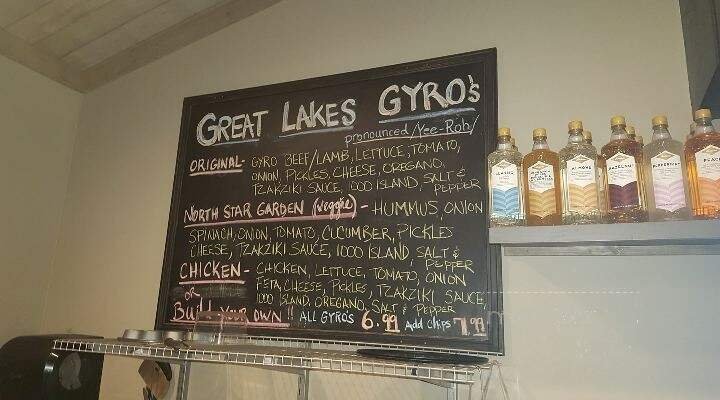 GREAT LAKES GYRO's
pronounced /Yee-Roh/
ORIGINAL- GYRO BEEF/LAMB, LETTUCE, TOMATO,
ONION, PICKLES, CHEESE, OREGANO
TZAKZIKI SAUCE, 1000 ISLAND, SALT &
PEPPER
NORTH STAR GARDEN (veggie) - HUMMUS, ONION
SPINACH, ONION, TOMATO, CUCUMBER, PICKLES
CHEESE, TZAKZIKI SAUCE, 1000 ISLAND, SALT &
PEPPER
CHICKEN- CHICKEN, LETTUCE, TOMATO, ONION
or FETA, CHEESE, PICKLES, TZAKZIKI SAUCE,
1000 ISLAND, OREGANO, SALT & PEPPER
BUILD YOUR OWN!! ALL GYRO'S 6.99 Add Chips 7.99
ALMOND
HAZELNUT
PEPPERMINT
PEACH